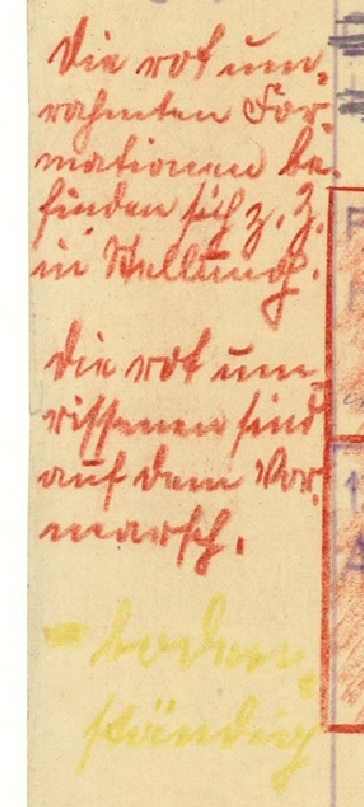 Die rot um-
rahmten For-
mationen be-
finden sich z. Z.
in Stellung.
Die rot um-
rissenen sind
auf dem Vor-
marsch.
= boden-
ständig